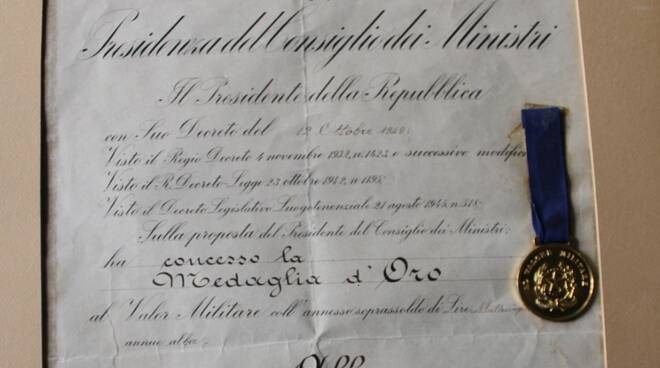 Presidenza del Consiglio dei Ministri
Il Presidente della Repubblica
con Suo Decreto del
Visto il Regio Decreto 4 novembre 1932, n. 1423 e successive
Visto il R. Decreto-Legge 23 ottobre 1942, n. 1195
Visto il Decreto Legislativo Luogotenenziale 21 agosto 1945, n. 518:
Sulla proposta del Presidente del Consiglio dei Ministri;
ha concesso la
Medaglia d' Oro
al Valor Militare coll' annesso soprassoldo di Lire
annue
AL VALORE MILITARE